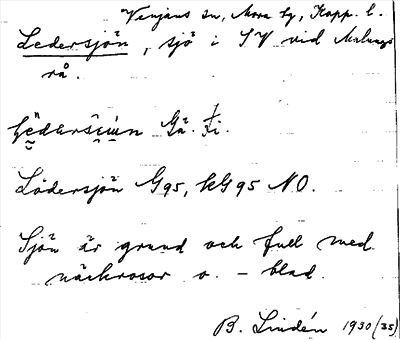 Venjans sn, Mora tg, Kopp. l.
Ledersjön, sjö i SV vid Malungs
rå.
Lödersjön G95, KG95 NO.
Sjön är grund och full med
näckrosor o. - blad.
B. Lindén 1930 (35)